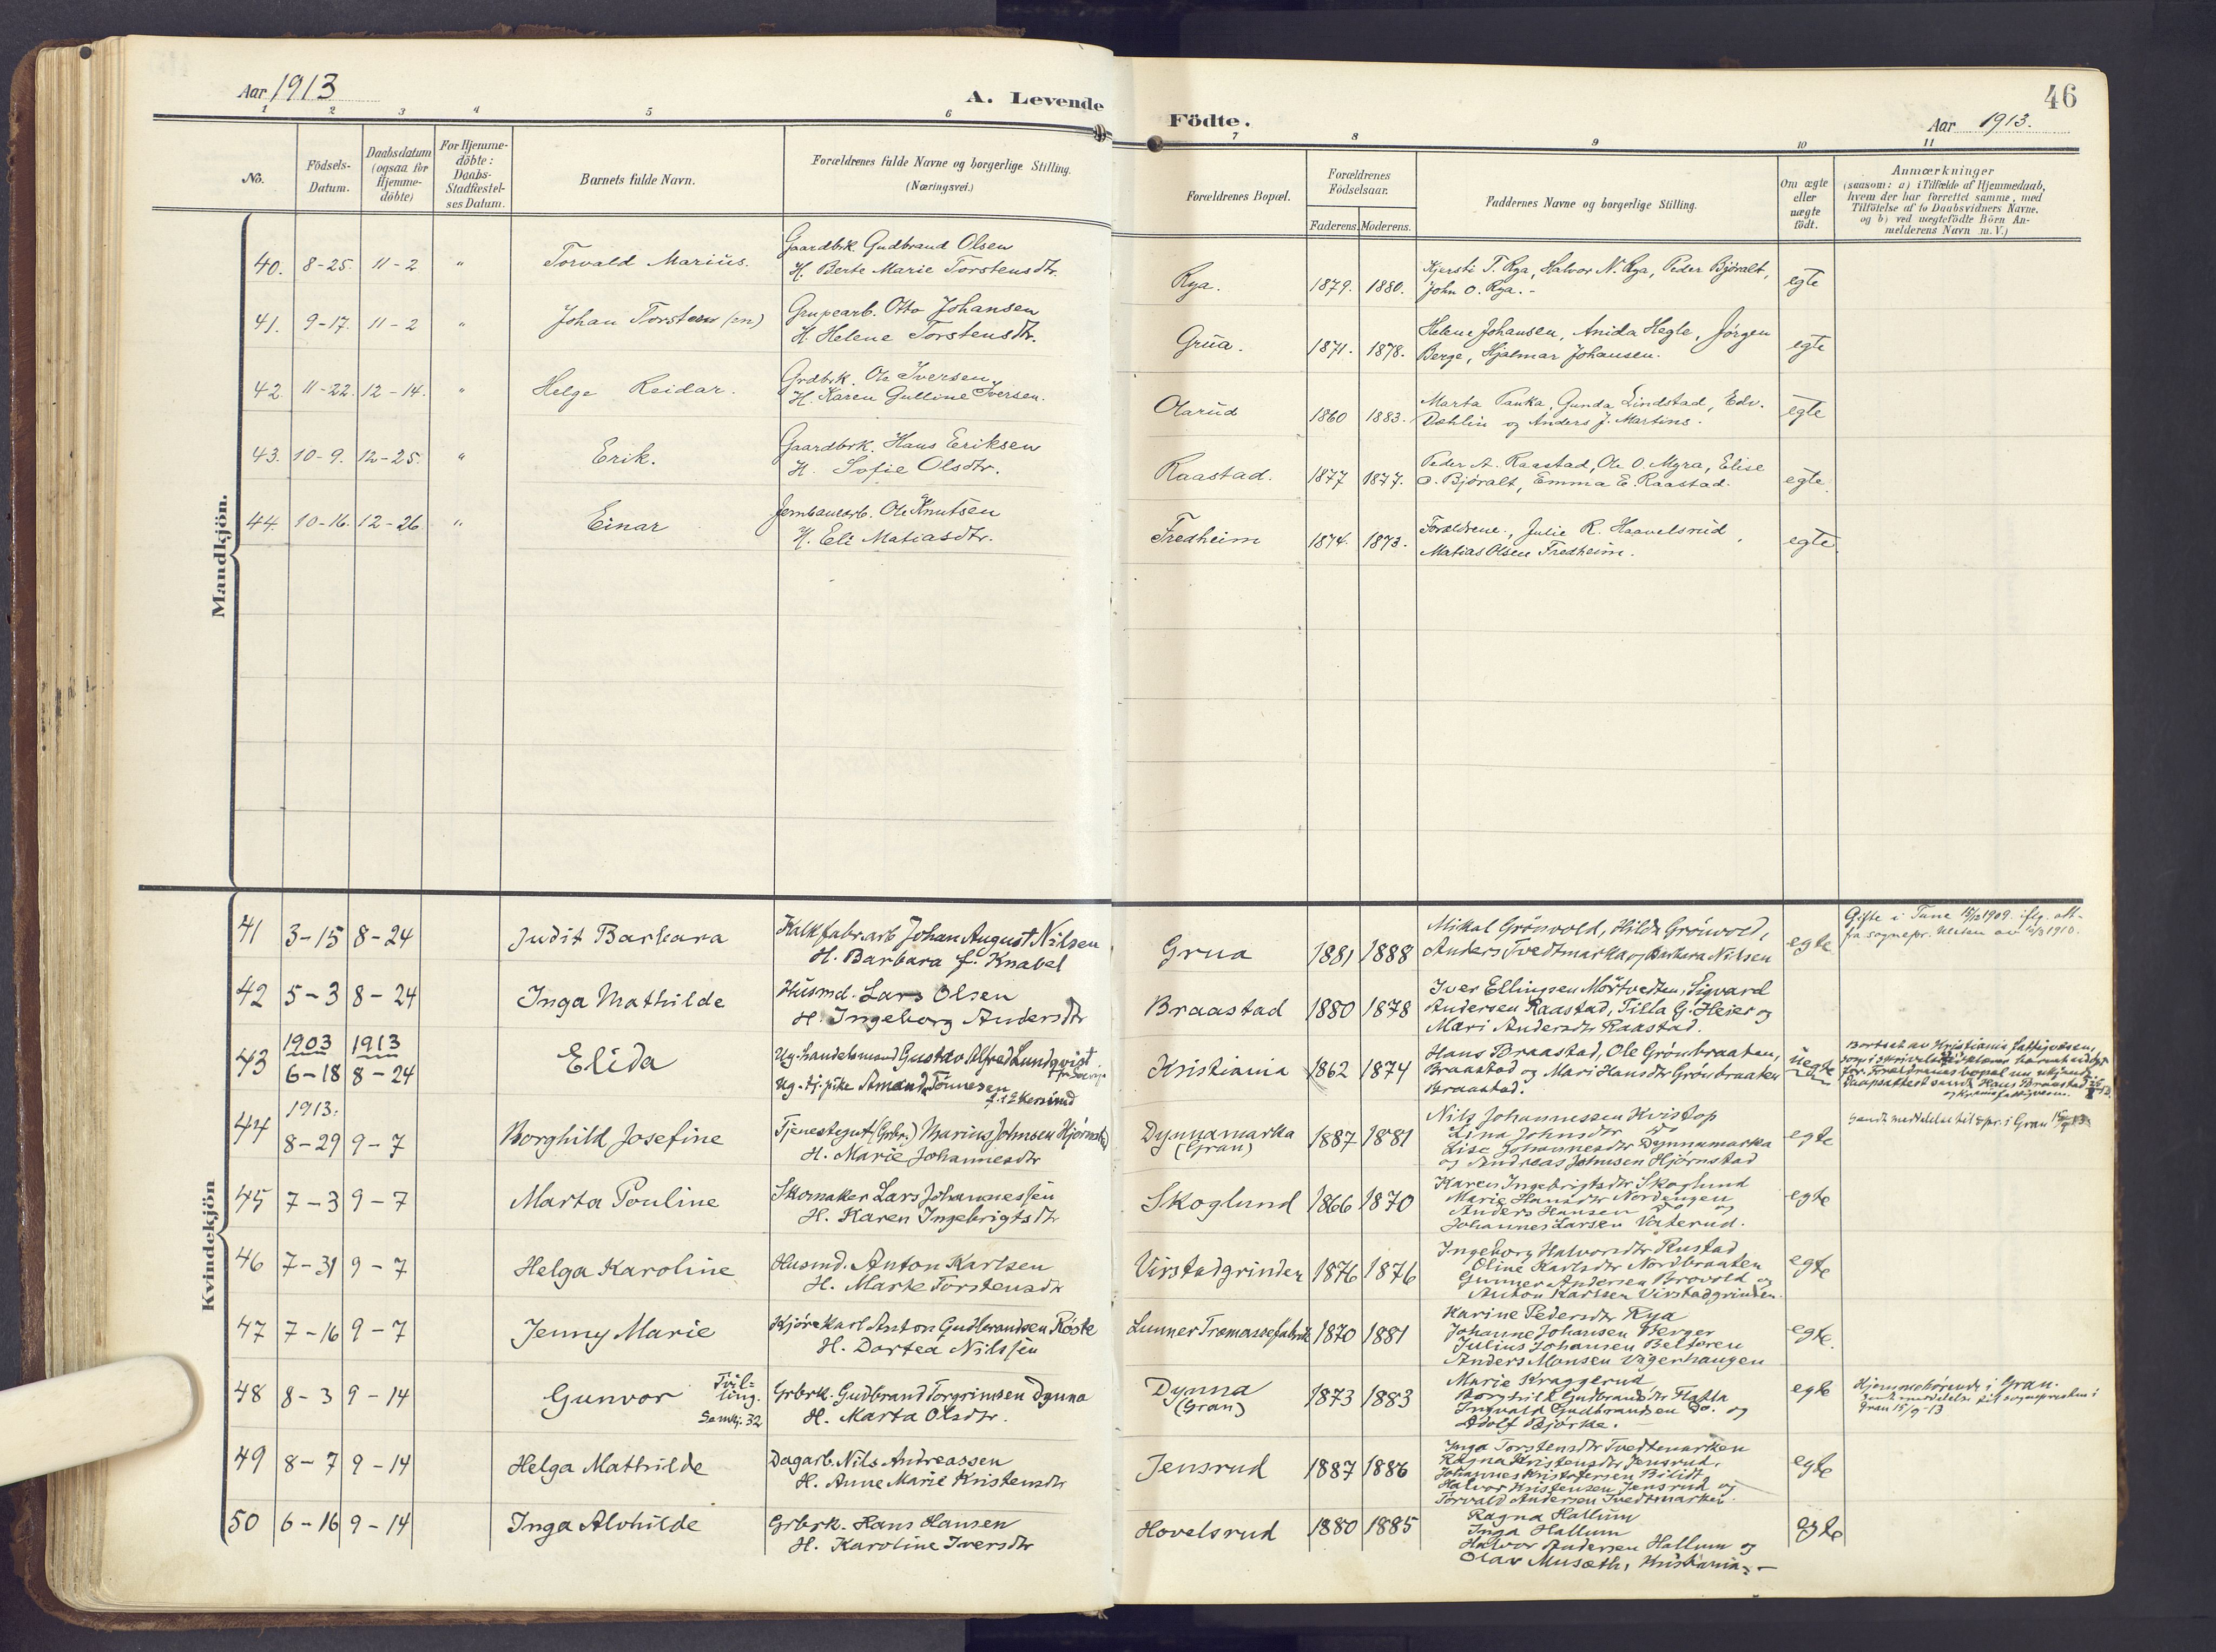 Aar 1913
A. Levende
1 2 3 4 5 6
No.
Födsels-
Datum.
Daabsdatum
(ogsaa for
Hjemme-
döbte)
For Hjemme-
döbte:
Daabs-
Stadfæstel-
ses Datum.
Barnets fulde Navn.
Forældrenes fulde Navne og borgerlige Stilling.
(Næringsvei.)
Mandkjön.
40. 8-25. 11-2 " Torvald Marius. Gaardbrk Gudbrand Olsen
H. Berte Marie Torstensdtr.
41. 9-17. 11-2 " Johan Torsten (en) Grupearb. Otto Johansen
H. Helene Torstensdtr.
42. 11-22. 12-14. " Helge Reidar. Grdbrk. Ole Iversen
H. Karen Gulline Iversen.
43. 10-9. 12-25. " Erik. Gaardbrk. Hans Eriksen
H. Sofie Olsdtr.
44. 10-16. 12-26. " Einar Jernbanearb. Ole Knutsen
H. Eli Matiasdtr.
Kvindekjön
41 3-15 8-24 Judit Barbara Kalkfabr.arb Johan August Nilsen
H. Barbara f. Knabel
42 5-3 8-24 Inga Mathilde Husmd. Lars Olsen
H. Ingeborg Andersdtr
43 1903 6-18 1913 8-24 Elida Ug. handelsmand Gustav Alfred Lundqvist
Ug. tj. pike Amanda Tønnesen
44 1913. 8-29 9-7 Borghild Josefine Tjenestegut (Grbr.) Marius Johnsen Hjørnstad
H. Marie Johannesdtr
45 7-3 9-7 Marta Pouline Skomaker Lars Johannessen
H. Karen Ingebrigtsdtr
46 7-31 9-7 Helga Karoline Husmd. Anton Karlsen
H. Marte Torstensdtr
47 7-16 9-7 Jenny Marie Kjøre Karl Anton Gudbrandsen Röste
H. Dortea Nilssen
48 8-3 9-14 Gunvor Tvil-
ling.
Samkj. 32 Grbrk. Gudbrand Torgrimsen Dynna
H. Marta Olsdtr.
49 8-7 9-14 Helga Mathilde Dagarb. Nils Andreassen
H. Anne Marie Kristensdtr
50 6-16 9-14 Inga Alvhilde Grbrk. Hans Hansen
H. Karoline Iversdtr
46
Födte.
Aar 1913.
7 8 9 10 11
Forældrenes Bopæl.
Forældrenes
Födselsaar.
Faderens. Moderens.
Faddernes Navne og borgerlige Stilling.
Om ægte
eller
uægte
födt.
Anmærkninger
(saasom: a) i Tilfælde af Hjemmedaab,
hvem der har forrettet samme, med
Tilföielse af to Daabsvidners Navne.
og b) ved uægtefödte Börn An-
melderens Navn m. V.)
Rya. 1879. 1880. Kjersti T. Rya, Halvor N. Rya, Peder Björalt,
John O. Rya.- egte
Grua. 1871. 1878. Helene Johansen, Anida Hegle, Jörgen
Berge, Hjalmar Johansen. egte
Olarud 1860 1883. Marta Pauka, Gunda Lindstad, Edv.
Dæhlin og Anders J. Martins. egte
Raastad. 1877 1877. Peder A. Raastad, Ole O. Myra, Elise
O. Björalt, Emma E. Raastad. egte
Fredheim 1874. 1873. Forældrene, Julie R. Haavelsrud,
Matias Olsen Fredheim. egte
Grua 1881 1888 Mikal Grönvold, Hilda Grönvold,
Anders Tvedtmarka og Barbara Nilsen egte Gifte i Tune 1909 iflg. att-
fra sognepr. 1910.
Braastad 1880 1878 Iver Ellingsen Mörtvedten, Sigvard
Andersen Raastad, Tilla G. Heier og
Mari Andersdtr Raastad.
Kristiania 1862 1874 Hans Braastad, Ole Grönbraaten,
Braastad og Mari Hansdtr Grönbraaten
Braastad. uegte Bortsat av Kristiania fattigvæsen,
Dynnamarka
(Gran) 1887 1881 Nils Johannessen Kvistop
Lina Johnsdtr Do
Lise Johannesdtr Dynnamarka
og Andreas Johnsen Hjørnstad egte Sendt meddelelse til spr. i Gran
Skoglund 1866 1870 Karen Ingebrigtsdtr Skoglund
Marie Hansdtr Nordengen
Anders Hansen Do og
Johannes Larsen Vaterud. egte
Virstadgrinden 1876 1876 Ingeborg Halvorsdtr Rustad
Oline Karlsdtr Nordbraaten
Gunner Andersen Brovold og
Anton Karlsen Virstadgrinden. egte
Lunner Træmassefabrik 1870 1881 Karine Pedersdtr Rya
Johanne Johansen Berger
Julius Johansen Belteren
Anders Monsen Vägerhaugen egte.
Dynna
(Gran) 1873 1883 Marie Kraggerud
Borghild Gudbrandsdtr Flatla
Ingvald Gudbrandsen Do. og
Adolf Bjørke. egte Hjemmehørende i Gran.
Sendt meddelelse til sognepresten i
Gran 15/9-13
Jensrud 1887 1886 Inga Torstensdtr Tvedtmarken
Ragna Kristensdtr Jensrud.
Johannes Kristofersen Bilidt
Halvor Kristensen Jensrud og
Torvald Andersen Tvedtmarken. egte
Hovelsrud 1880 1885 Ragna Hallum
Inga Hallum
Halvor Andersen Hallum og
Olav Musæth, Kristiania. egte